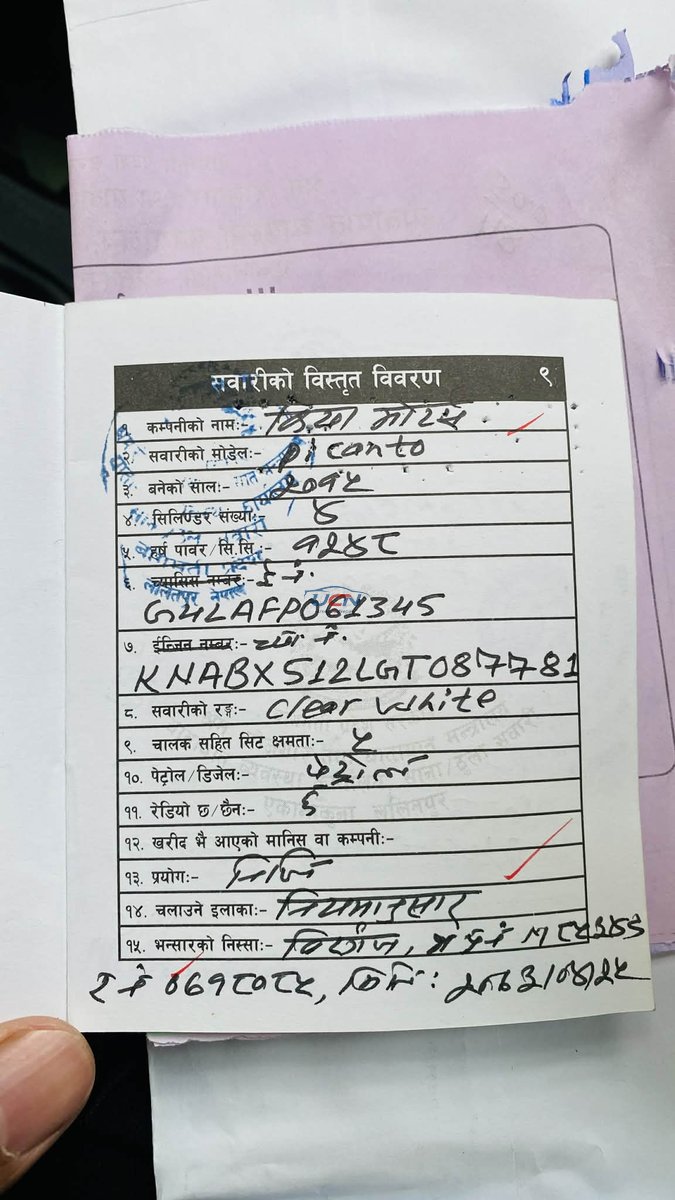 सवारीको विस्तृत विवरण ९
१. कम्पनीको नाम:- किया मोटर्स
२. सवारीको मोडेल:- Picanto
३. बनेको साल:- २०१५
४. सिलिण्डर संख्या:- ४
५. हर्ष पावर/सि.सि.- १२४८
६. च्यासिस नम्बर:- ई नं.
G4LAFP061345
७. ईन्जिन नम्बर:- च्या नं.
KNABX512LGT087781
८. सवारीको रङ्ग:- Clear White
९. चालक सहित सिट क्षमता:- ५
१०. पेट्रोल/डिजेल:- पेट्रोल
११. रेडियो छ/छैन:- छ
१२. खरीद भै आएको मानिस वा कम्पनी:-
१३. प्रयोग:- निजि
१४. चलाउने इलाका:- नियमानुसार
१५. भन्सारको निस्सा:- विर्गंज, प्र प नं M ८५३४३
र नं ०६१८०८५, मिति: २०७३/०४/२५
ललितपुर नेपाल